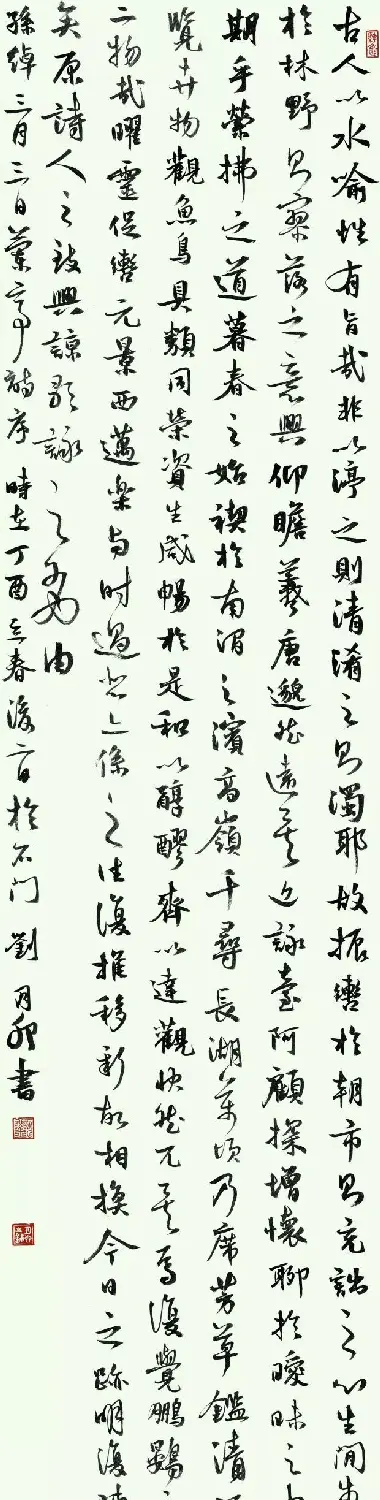 古人以水喻性有旨哉非以渟之則清淆之則濁耶故振轡於朝市則充詘之心生閒步
於林野則寥落之意興仰瞻羲唐邈然遠矣近詠臺阿顧探增懷聊於曖昧之
期乎縈拂之道暮春之始禊於南澗之濱高嶺千尋長湖萬頃乃席芳草鑑清
覽卉物觀魚鳥具類同榮資生咸暢於是和以醇醪齊以達觀快然兀矣焉復覺鵬鷃
二物哉曜靈促轡元景西邁樂与時過悲亦係之往復推移新故相換今日之跡明復
矣原詩人之致興諒歌詠之有由
孫綽三月三日蘭亭詩序 時在丁酉春後日於石门 劉月卯書